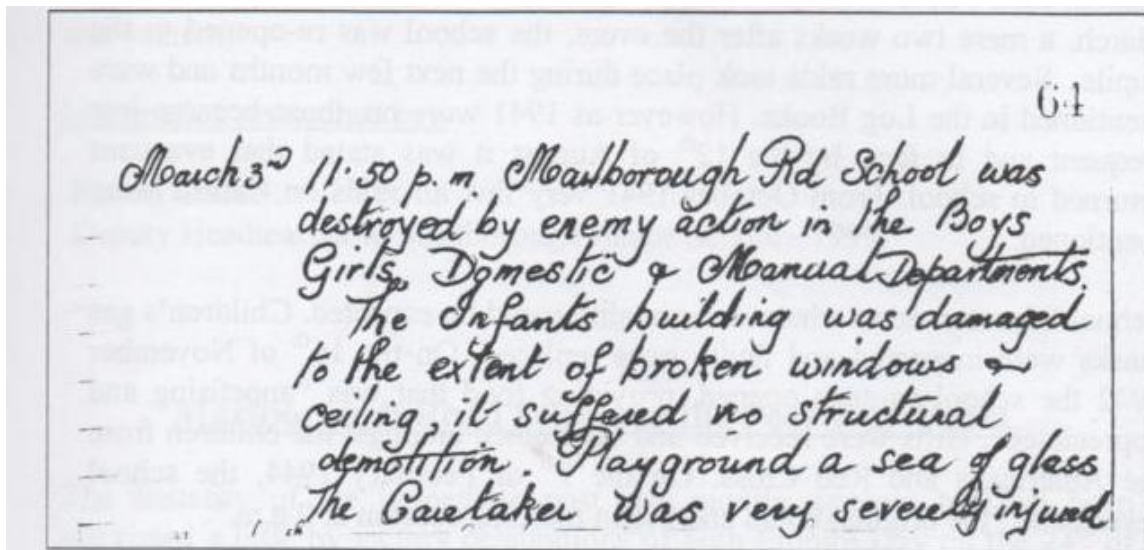 64
March 3rd 11.50 p.m. Marlborough Rd School was
destroyed by enemy action in the Boys
Girls, Domestic & Manual Departments.
The Infants building was damaged
to the extent of broken windows &
ceiling, it suffered no structural
demolition. Playground a sea of glass
The Caretaker was very severely injured